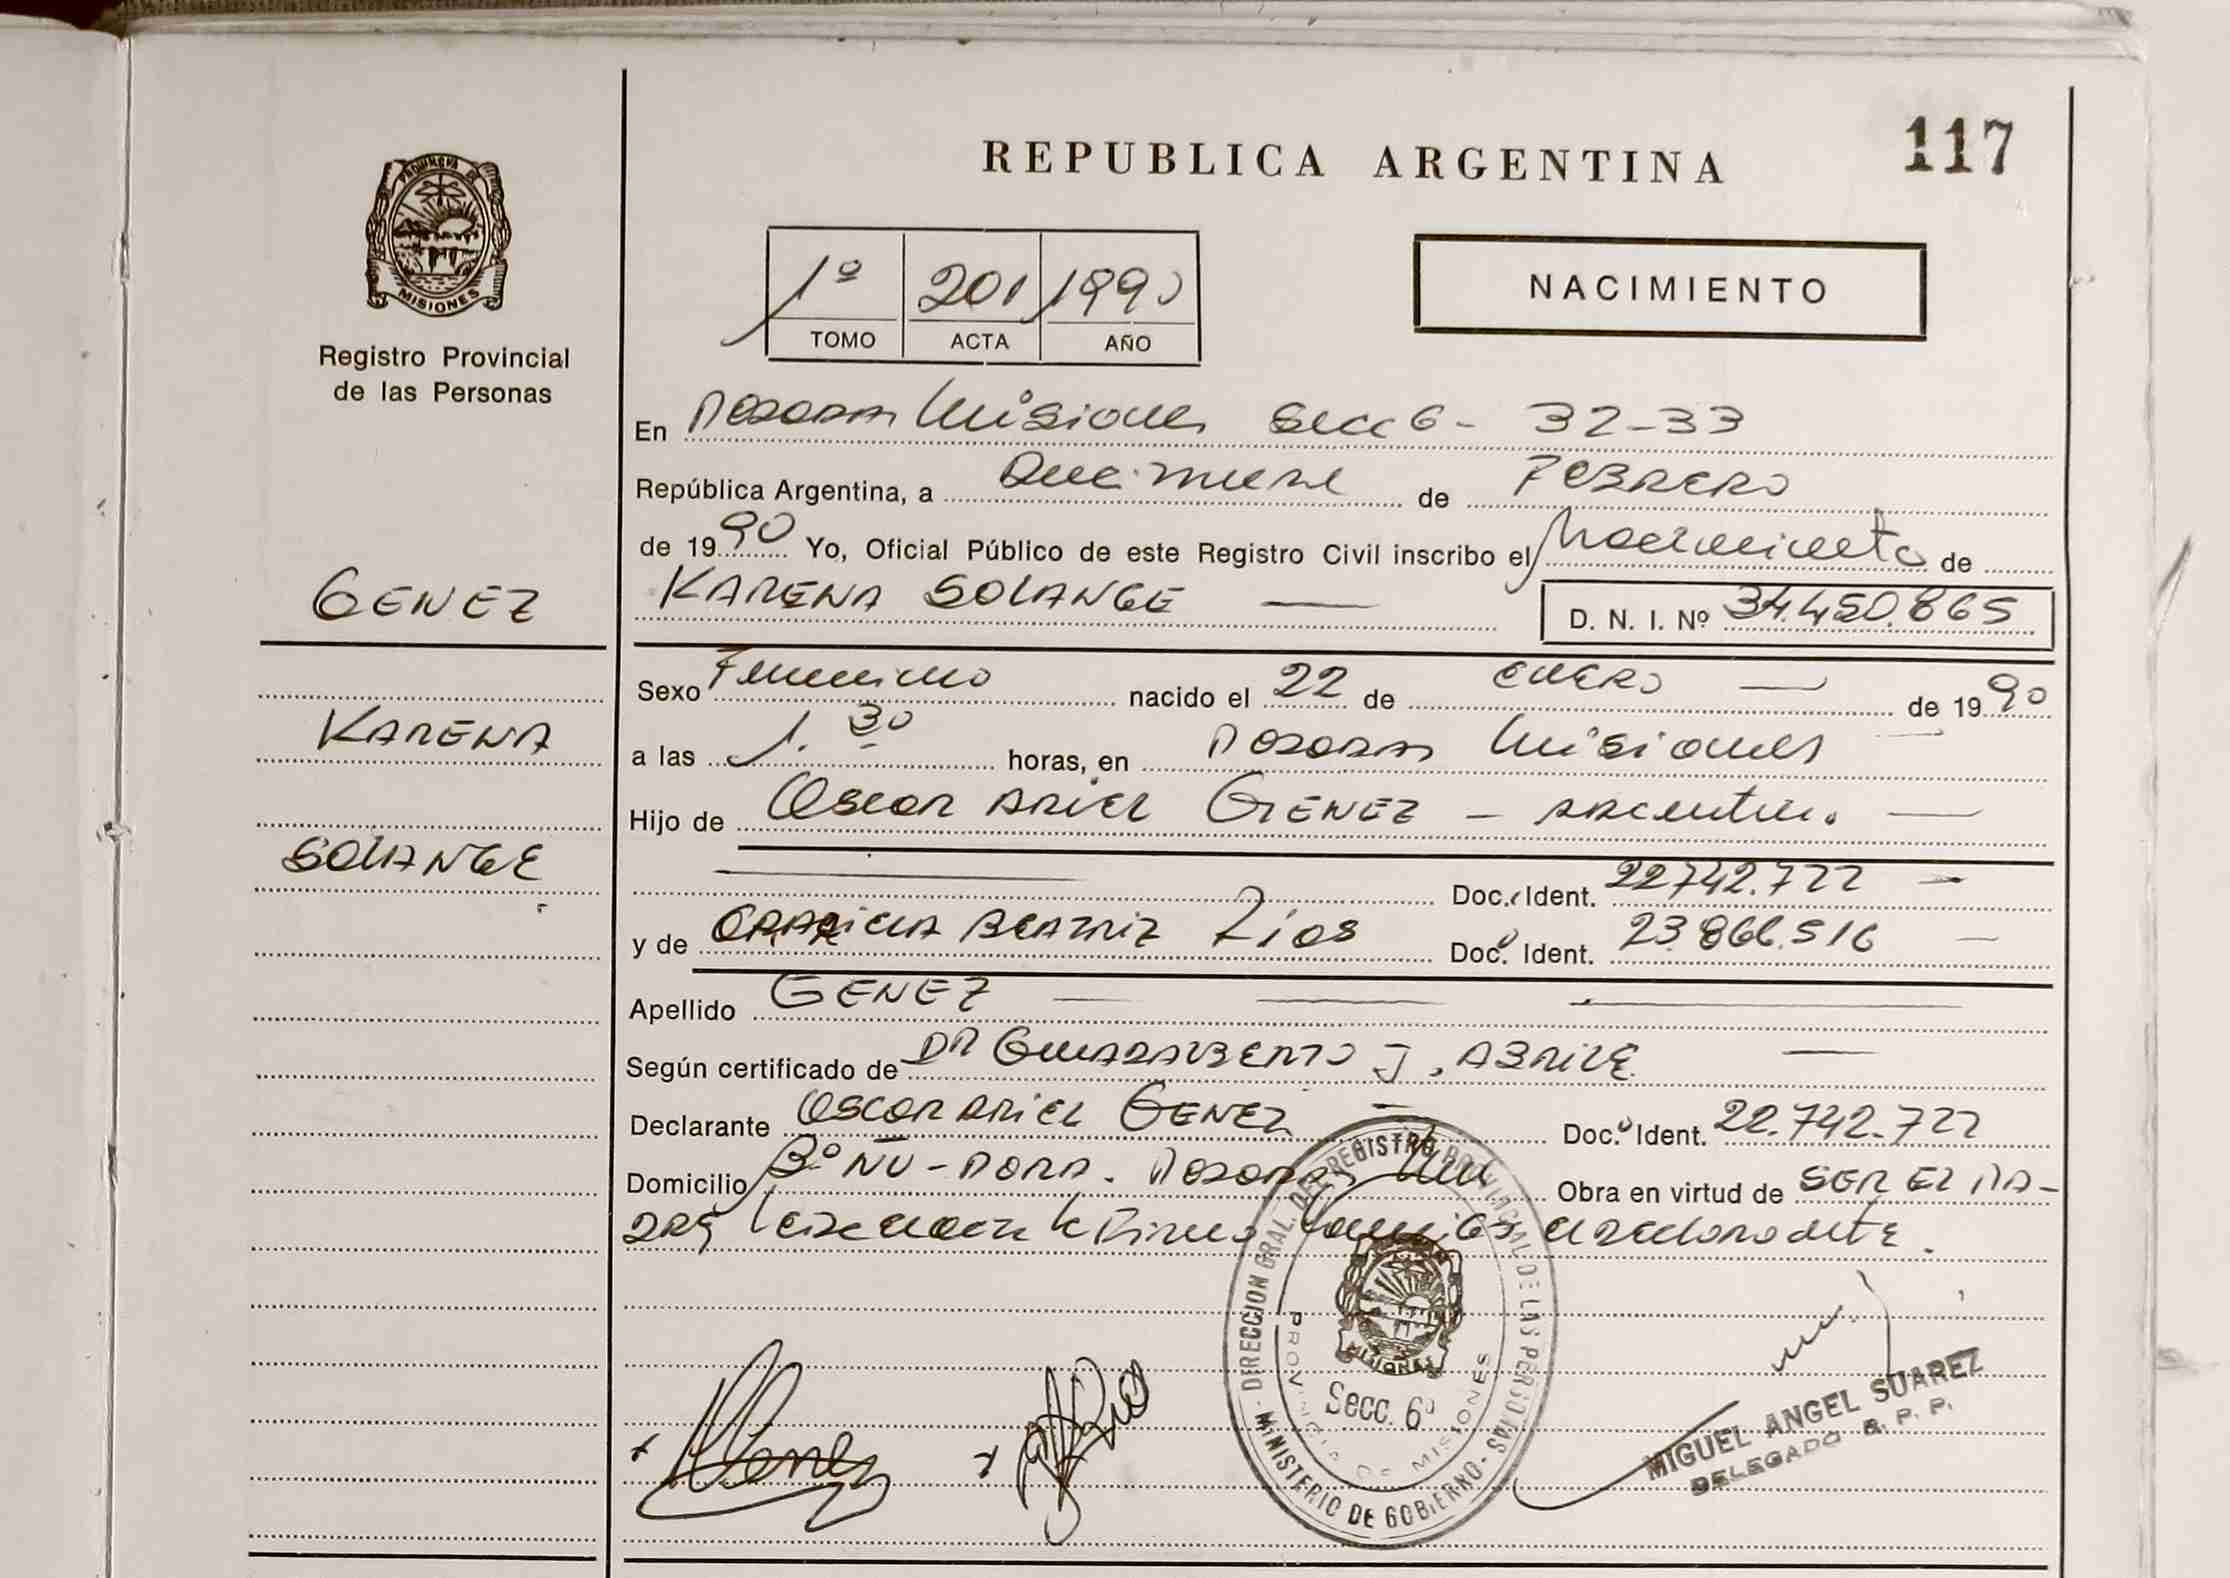 117
REPUBLICA ARGENTINA
PROVINCIA DE
MISIONES
Registro Provincial
de las Personas
1º 201 1990
TOMO ACTA AÑO
NACIMIENTO
En Posadas Misiones Secc 6 - 32-33
República Argentina, a de FEBRERO
de 1990 Yo, Oficial Público de este Registro Civil inscribo el Nacimiento de
GENEZ
KARENA SOLANGE —
D. N. I. Nº 34.450.865
Sexo Femenino nacido el 22 de ENERO — de 1990
KARENA
a las 1.30 horas, en Posadas Misiones —
Hijo de Oscar ARIEL GENEZ — argentino. —
SOLANGE
Doc. Ident. 22742.722 —
y de BEATRIZ Ríos Doc. Ident. 23.866.516 —
Apellido GENEZ — — —
Según certificado de DR J. ABRILE —
Declarante OSCAR ARIEL GENEZ — Doc. Ident. 22.742.722
Domicilio Bº ÑU-PORA. Posadas Mnes Obra en virtud de SER EL PA-
DRE el declarante.
MINISTERIO DE GOBIERNO - DIRECCION GRAL. DEL REGISTRO PROVINCIAL DE LAS PERSONAS -
MISIONES
Secc. 6ª
PROVINCIA DE MISIONES
Genez
MIGUEL ANGEL SUAREZ
DELEGADO R. P. P.